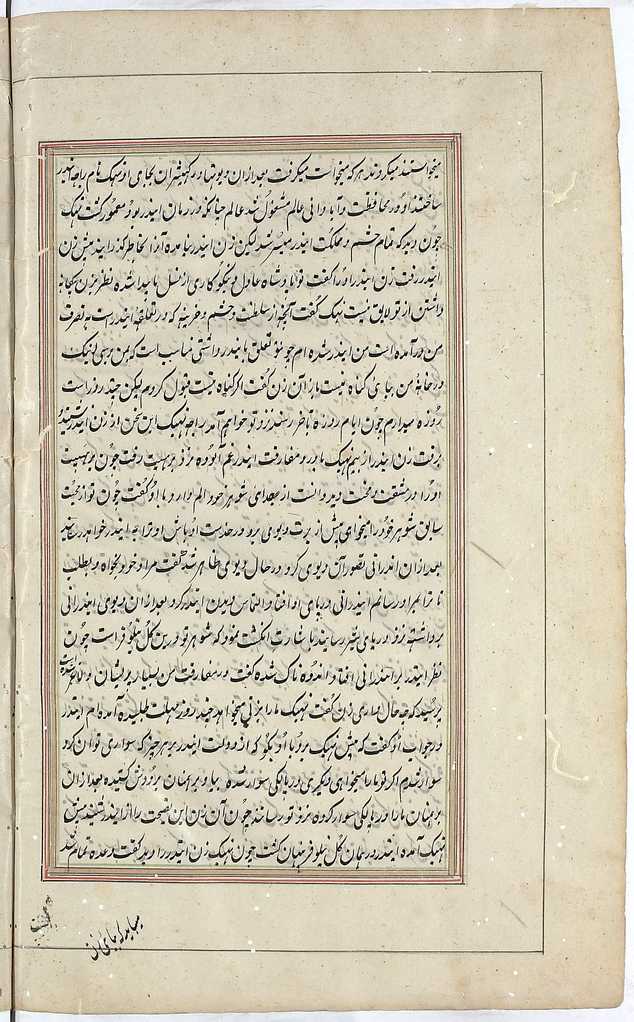 میخواستند میکردند هر که میخواست میکرفت بعد ازان دیوتها و رکهیشران بجای او نهک نام راجه شهر
ساختند او در محافظت و آبادانی عالم مشغول شد عالم چنانکه در زمان ایندر بود معمور کشت نهک
چون دید که تمام حشم و مملکت ایندر میسر شد لیکن زن ایندر نیامده آنرا بخاطر گذرانید پیش زن
ایندر رفت زن ایندر او را گفت تو پادشاه عادل و نیکوکاری از نسل پیدا شده نظر بزن بیکانه
داشتن از تو لایق نیست نهک گفت آنچه از سلطنت و حشم و خزینه که در تعلقه ایندر است به تصرف
من درآمده است من ایندر شده ام چون تو تعلق بایندر داشتی مناسب است که بمن برسی نیک
در خانهٔ من بیای گناه نیست باز آن زن گفت اگر گناه نیست قبول کردم لیکن چند روز است
روزه میدارم چون ایام روزه تا آخر رسد نزد تو خواهم آمد راجه نهک این سخن از زن ایندر شنید و
برفت زن ایندر از بیم نهک نابدر و مفارقت ایندر غم آلوده نزد برهسپت رفت چون برهسپت
او را در مشقت و محنت دید دانست از جدای شوهر خود الم دارد با او گفت چون تو از محبت
سابق شوهر خود را میخواهی پیش از پرت دیوی برو در خدمت او باش او ترا به ایندر خواهد رسانید
بعد ازان اندرانی تصور آن دیوی کرد در حال دیوی ظاهر شد گفت مراد خود بخواه و بطلب
تا ترا بمراد رسانم ایندرانی در پای او افتاد و التماس دیدن ایندر کرد بعد ازان دیوی ایندرانی
برداشته نزد دریای شیر رسانید باشارت انکشت نمود که شوهر تو درین گل نیلوفر است چون
نظر ایندر بر ایندرانی افتاد اندوه ناک شده گفت در مفارقت من بسیار پریشان و لاغر شده
پرسید که چه حال داری زن گفت نهک ما را بزنی میخواهد چند روز مهلت طلبیده آمده ام ایندر
در جواب او گفت که پیش نهک برو با او بگو که از دولت ایندر بر هر چیز که سواری توان کرد
سوار شدم اگر تو ما را میخواهی دیگری در پالکی سوار شده بیا و برهمنان بر دوش کشیده بعد ازان
برهمنان ما را در پالکی سوار کرده نزد تو رسانند چون آن زن این نصیحت را از ایندر شنید پیش
نهک آمده ایندر در همان گل نیلوفر پنهان گشت چون نهک زن ایندر را دید گفت وعده تمام شد